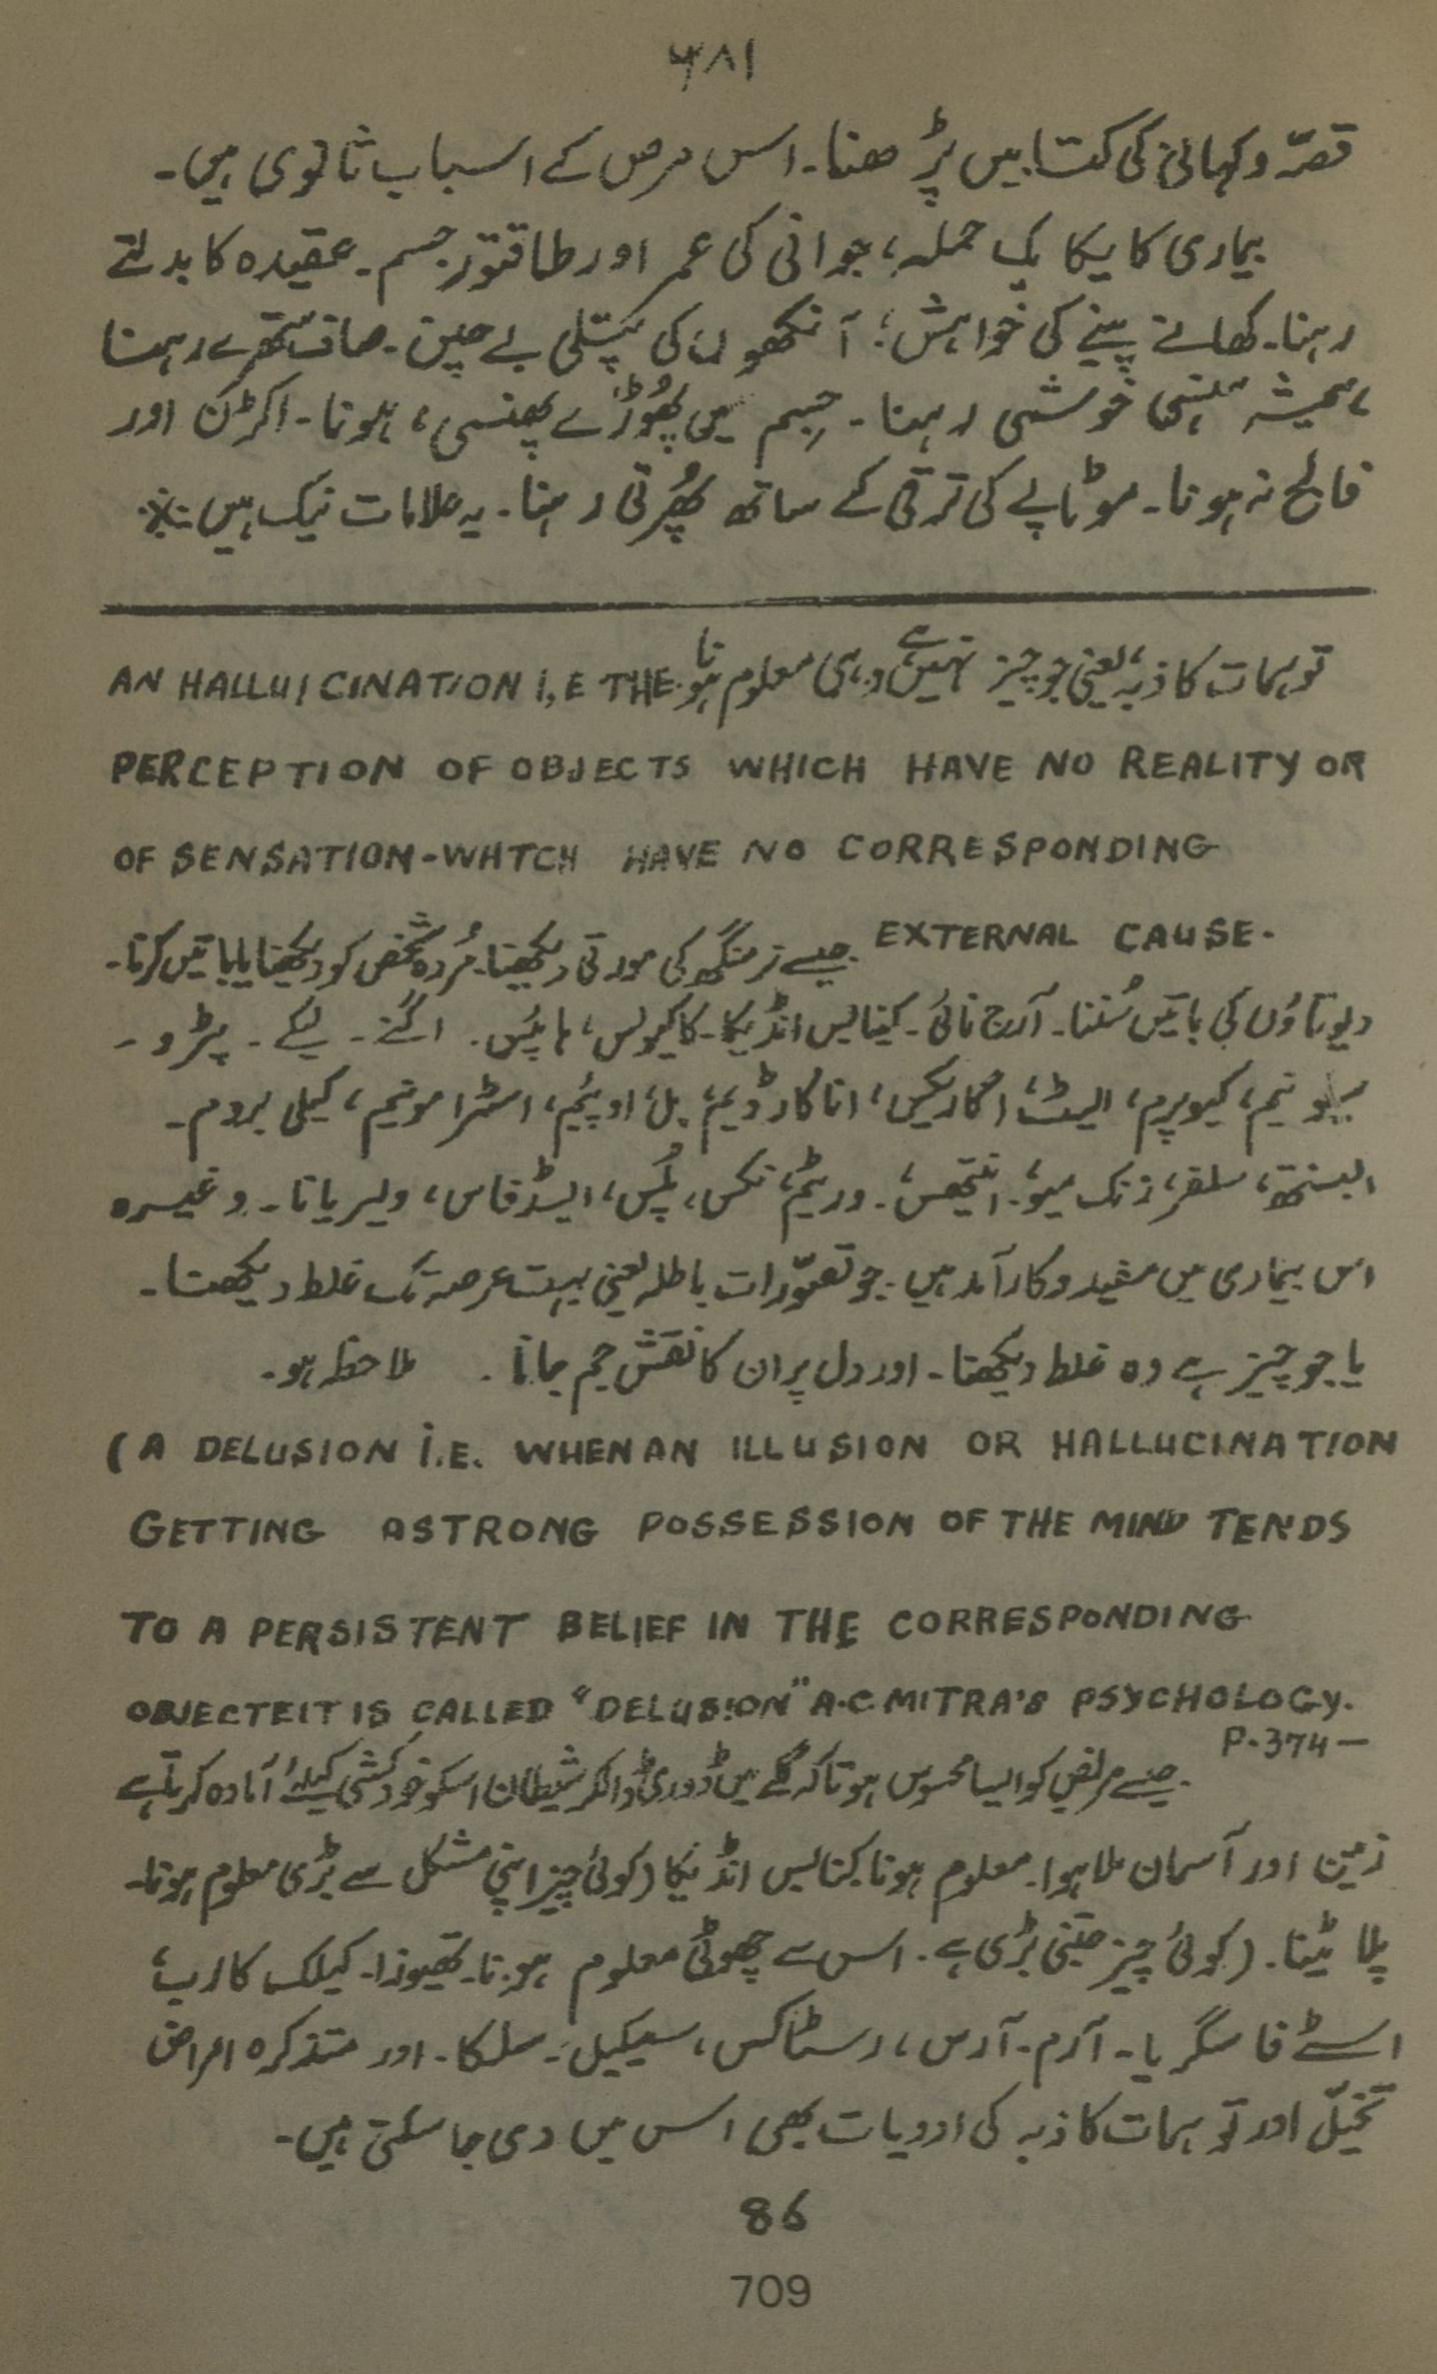 ۶۸۱
قصّہ و کہانی کی کتابیں پڑھنا۔ اس مرض کے اسباب ثانوی ہیں۔
بیماری کا یکایک حملہ، جوانی کی عمر اور طاقتور جسم۔ عقیدہ کا بدلتے
رہنا۔ کھانے پینے کی خواہش؛ آنکھوں کی پتلی بے چین۔ صاف ستھرے رہنا
ہمیشہ ہنسی خوشی رہنا۔ جسم میں پھُوڑے پھنسی، ہونا۔ اکڑن اور
فالج نہ ہونا۔ موٹاپے کی ترقی کے ساتھ پھُرتی رہنا۔ یہ علامات نیک ہیں ※
توہمات کاذبہ، یعنی جو چیز نہیں ہے وہی معلوم ہونا AN HALLUICINATION I,E THE
PERCEPTION OF OBJECTS WHICH HAVE NO REALITY OR
OF SENSATION-WHTCH HAVE NO CORRESPONDING
EXTERNAL CAUSE. جیسے نرمنگھ کی مورتی دیکھنا۔ مُردہ شخص کو دیکھنا یا باتیں کرنا۔
دیوتاؤں کی باتیں سُننا۔ آرج نائی۔ کینابس انڈیکا۔ کاکیولس، ہائپس۔ اگنے۔ لیکے۔ پٹرو۔
نیم، کیوپرم، ایسٹ، اگاریکس، اناکارڈیم، بل، اوپیم، اسٹرامونیم، کیلی بروم۔
ابسنتھ، سلفر، زنک میو، انتیھس، ۔ ورٹیم، نکس، پلس، ایسڈفاس، ولیریانا۔ وغیرہ
اس بیماری میں مفید و کارآمد ہیں۔ جو تصوّرات باطلہ یعنی بہت عرصہ تک غلط دیکھتا۔
یا جو چیز ہے وہ غلط دیکھتا۔ اور دل پر ان کا نقش جم جانا۔ ملاحظہ ہو۔
(A DELUSION I.E. WHEN AN ILLUSION OR HALLUCINATION
GETTING ASTRONG POSSESSION OF THE MIND TENDS
TO A PERSISTENT BELIEF IN THE CORRESPONDING
OBJECTEIT IS CALLED "DELUSION" A.C MITRA'S PSYCHOLOGY.
P.374—
جیسے مریض کو ایسا محسوس ہوتا کہ گلے میں ڈوری ڈالکر شیطان اسکو خودکشی کیلئے آمادہ کرتا ہے
زمین اور آسمان ملا ہوا۔ معلوم ہونا کنابس انڈیکا (کوئی چیز اپنی مشکل سے بڑی معلوم ہونا۔
پلاٹینا۔ (کوئی چیز جتنی بڑی ہے۔ اس سے چھوٹی معلوم ہونا۔ تھیوزا۔ کیلک کارب،
اسٹے فاسگریا۔ آرم۔ آرس، رسٹاکس، سیکیل۔ سلکا۔ اور متذکرہ امراض
تخیّل اور توہمات کاذبہ کی ادویات بھی اس میں دی جاسکتی ہیں۔
86
709